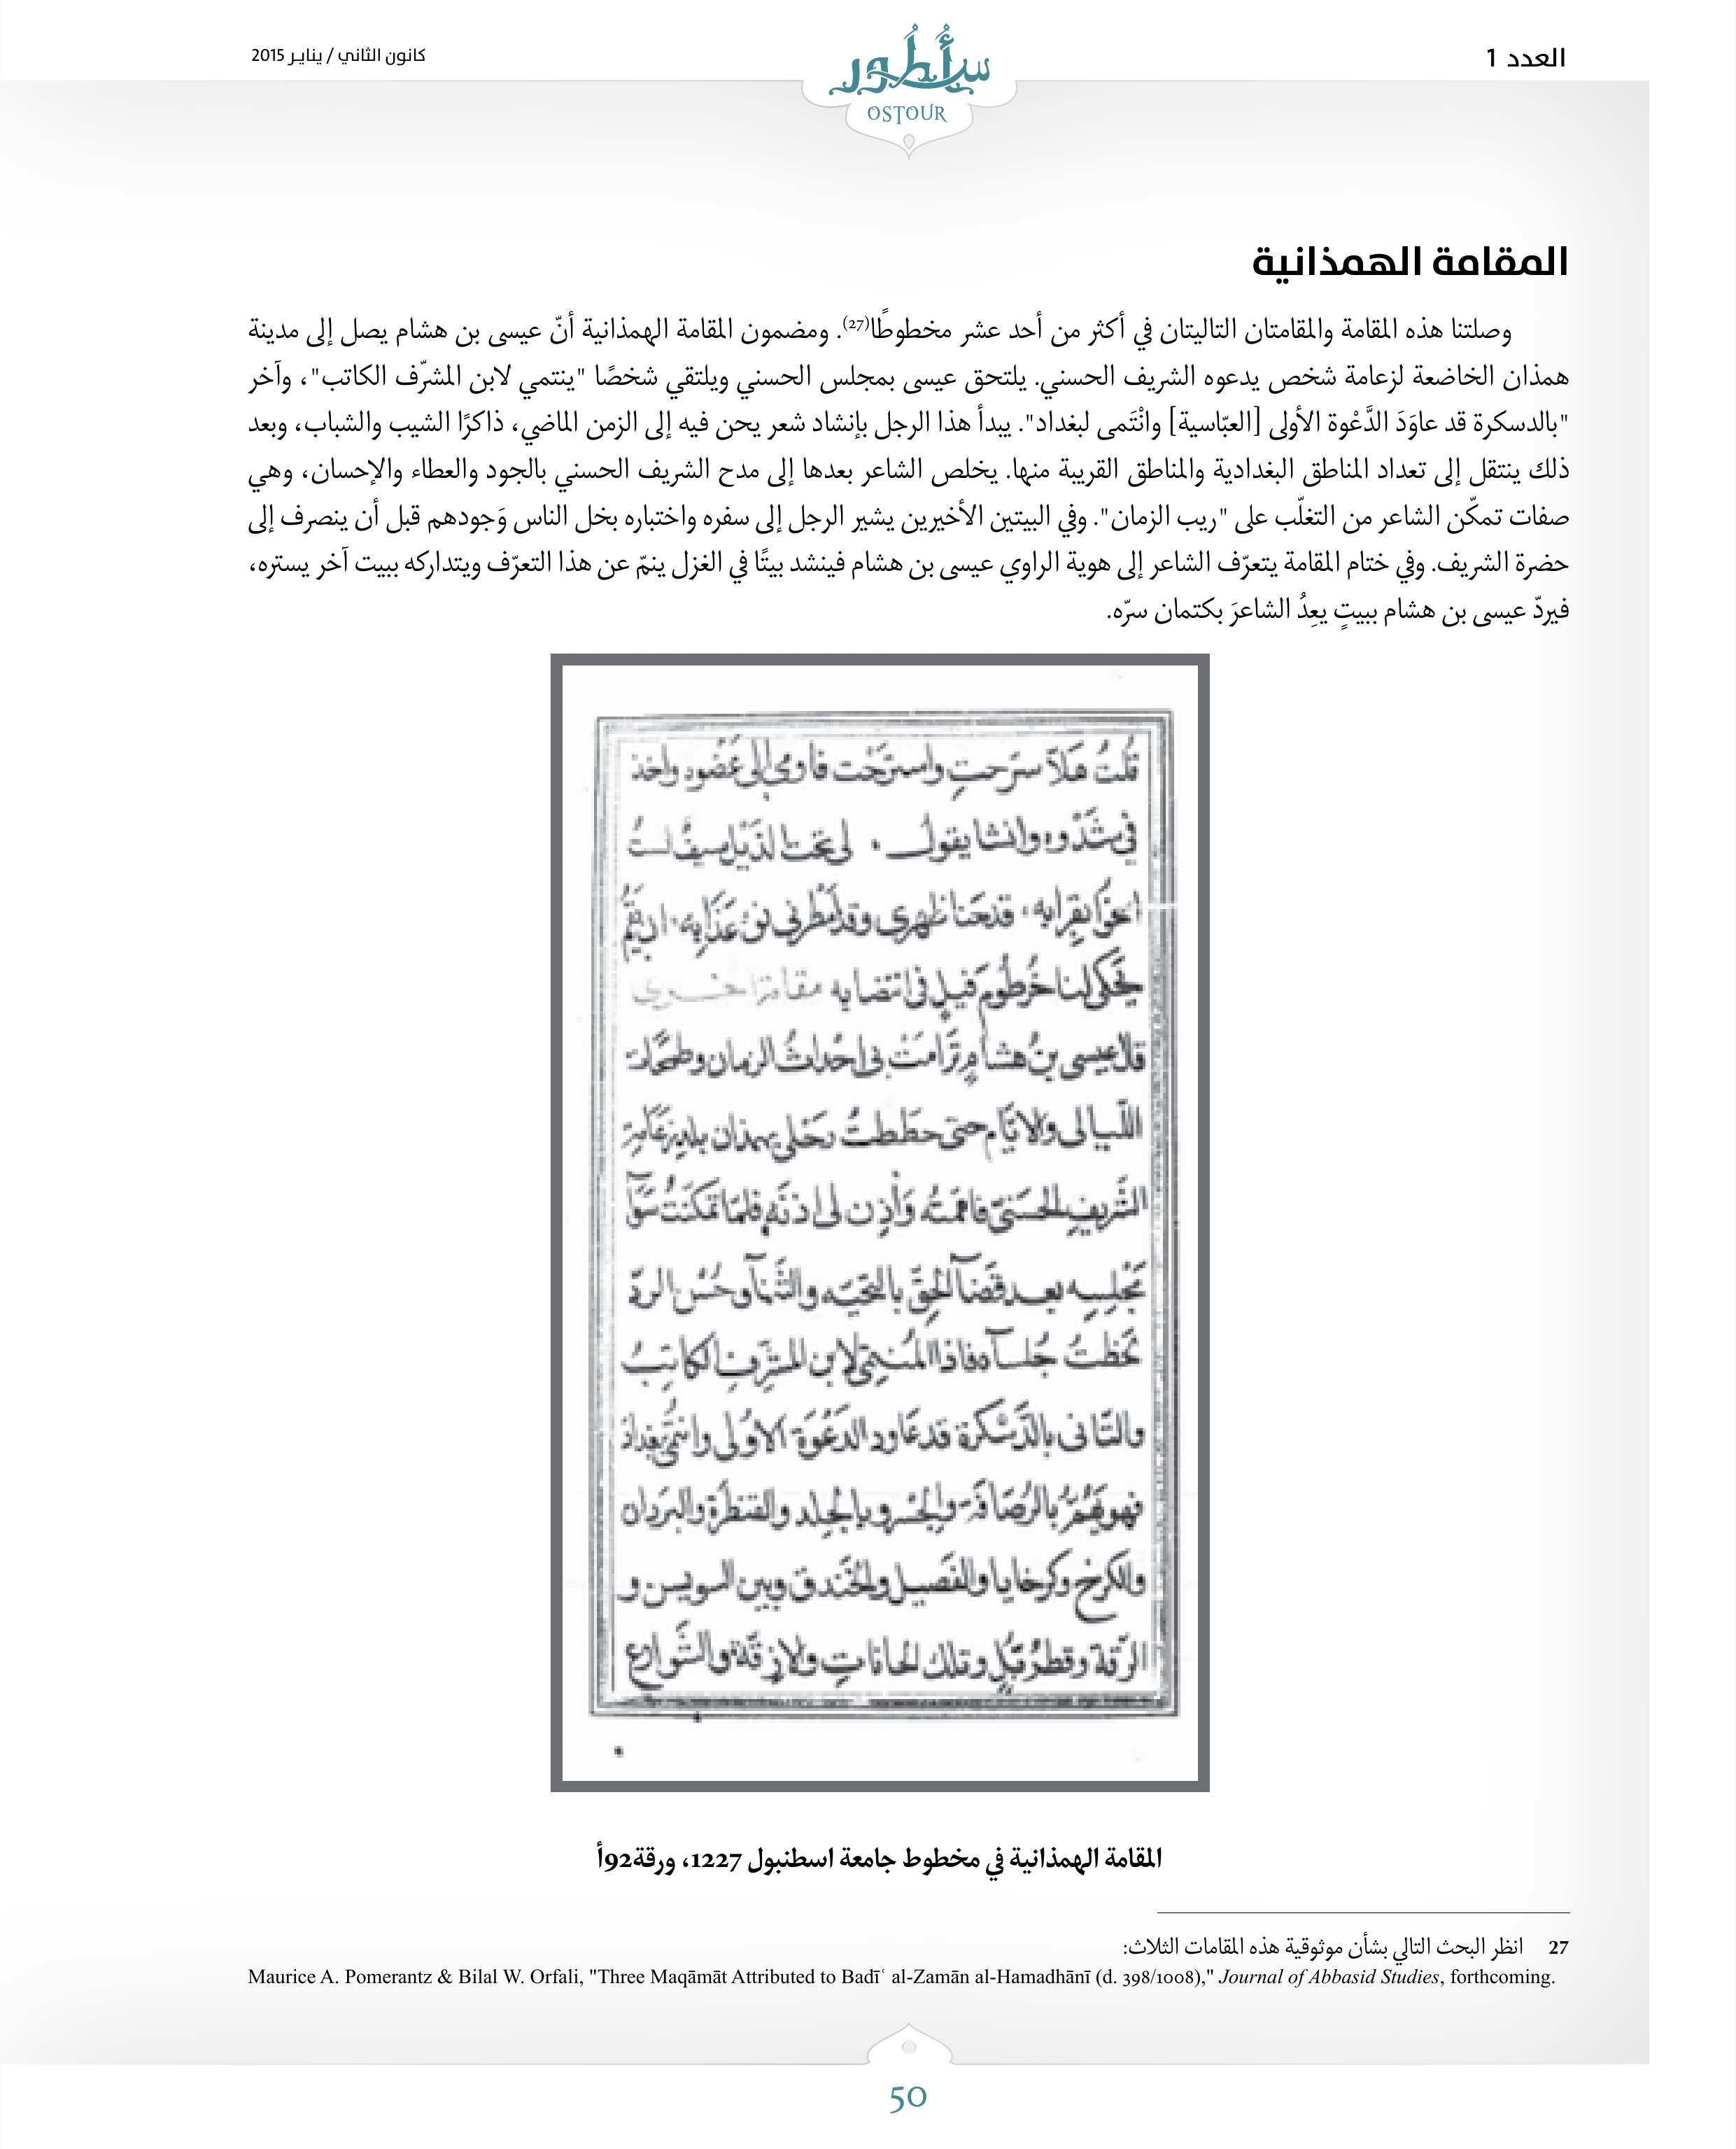 العدد 1
أسطور
OSTOUR
كانون الثاني / يناير 2015
المقامة الهمذانية
وصلتنا هذه المقامة والمقامتان التاليتان في أكثر من أحد عشر مخطوطًا(27). ومضمون المقامة الهمذانية أنّ عيسى بن هشام يصل إلى مدينة
همذان الخاضعة لزعامة شخص يدعوه الشريف الحسني. يلتحق عيسى بمجلس الحسني ويلتقي شخصًا "ينتمي لابن المشرّف الكاتب"، وآخر
"بالدسكرة قد عاوَدَ الدَّعْوة الأولى [العبّاسية] وانْتَمى لبغداد". يبدأ هذا الرجل بإنشاد شعر يحن فيه إلى الزمن الماضي، ذاكرًا الشيب والشباب، وبعد
ذلك ينتقل إلى تعداد المناطق البغدادية والمناطق القريبة منها. يخلص الشاعر بعدها إلى مدح الشريف الحسني بالجود والعطاء والإحسان، وهي
صفات تمكّن الشاعر من التغلّب على "ريب الزمان". وفي البيتين الأخيرين يشير الرجل إلى سفره واختباره بخل الناس وَجودهم قبل أن ينصرف إلى
حضرة الشريف. وفي ختام المقامة يتعرّف الشاعر إلى هوية الراوي عيسى بن هشام فينشد بيتًا في الغزل ينمّ عن هذا التعرّف ويتداركه ببيت آخر يستره،
فيردّ عيسى بن هشام ببيتٍ يعِدُ الشاعرَ بكتمان سرّه.
قلتُ هلّا سرحتِ واسترحْت فاومى إلى عضود واخذ
في شدوه وانشا يقول لى تحت الذيل سيف لستُ
بقرابه قد ظهرى وقد عذابه
يحكى لنا خرطوم فيلٍ فى انتصابه مقامة اخرى
قال عيسى بنُ هشامٍ ترامتْ بى احداثُ الزمان
اللّيالى والايّام حتى حططتُ رحلى بهمذان
الشّريف الحسنىّ وأذِن لى فلمّا تمكنتُ
مجلسه بعد قضآ الحقّ بالتحيّه والثّنآ وحُسْن الردّ
لحظتُ جُلسآه فاذا المُنتمى لابن المشرّف الكاتبُ
والثّانى بالدّسْكرة قد عاود الدّعْوَة الاُولى وانتمى بغداد
فهو بالرُّصافة والجسْر والقنطرة والبَرَدان
والكرخ وكرخايا والفصيل والخَندق وبين السورين و
الرّقة وقطرُبّل وتلك الحانات والازقّة والشّوارع
المقامة الهمذانية في مخطوط جامعة اسطنبول 1227، ورقة92أ
27 انظر البحث التالي بشأن موثوقية هذه المقامات الثلاث:
Maurice A. Pomerantz & Bilal W. Orfali, "Three Maqāmāt Attributed to Badīʿ al-Zamān al-Hamadhānī (d. 398/1008)," Journal of Abbasid Studies, forthcoming.
50